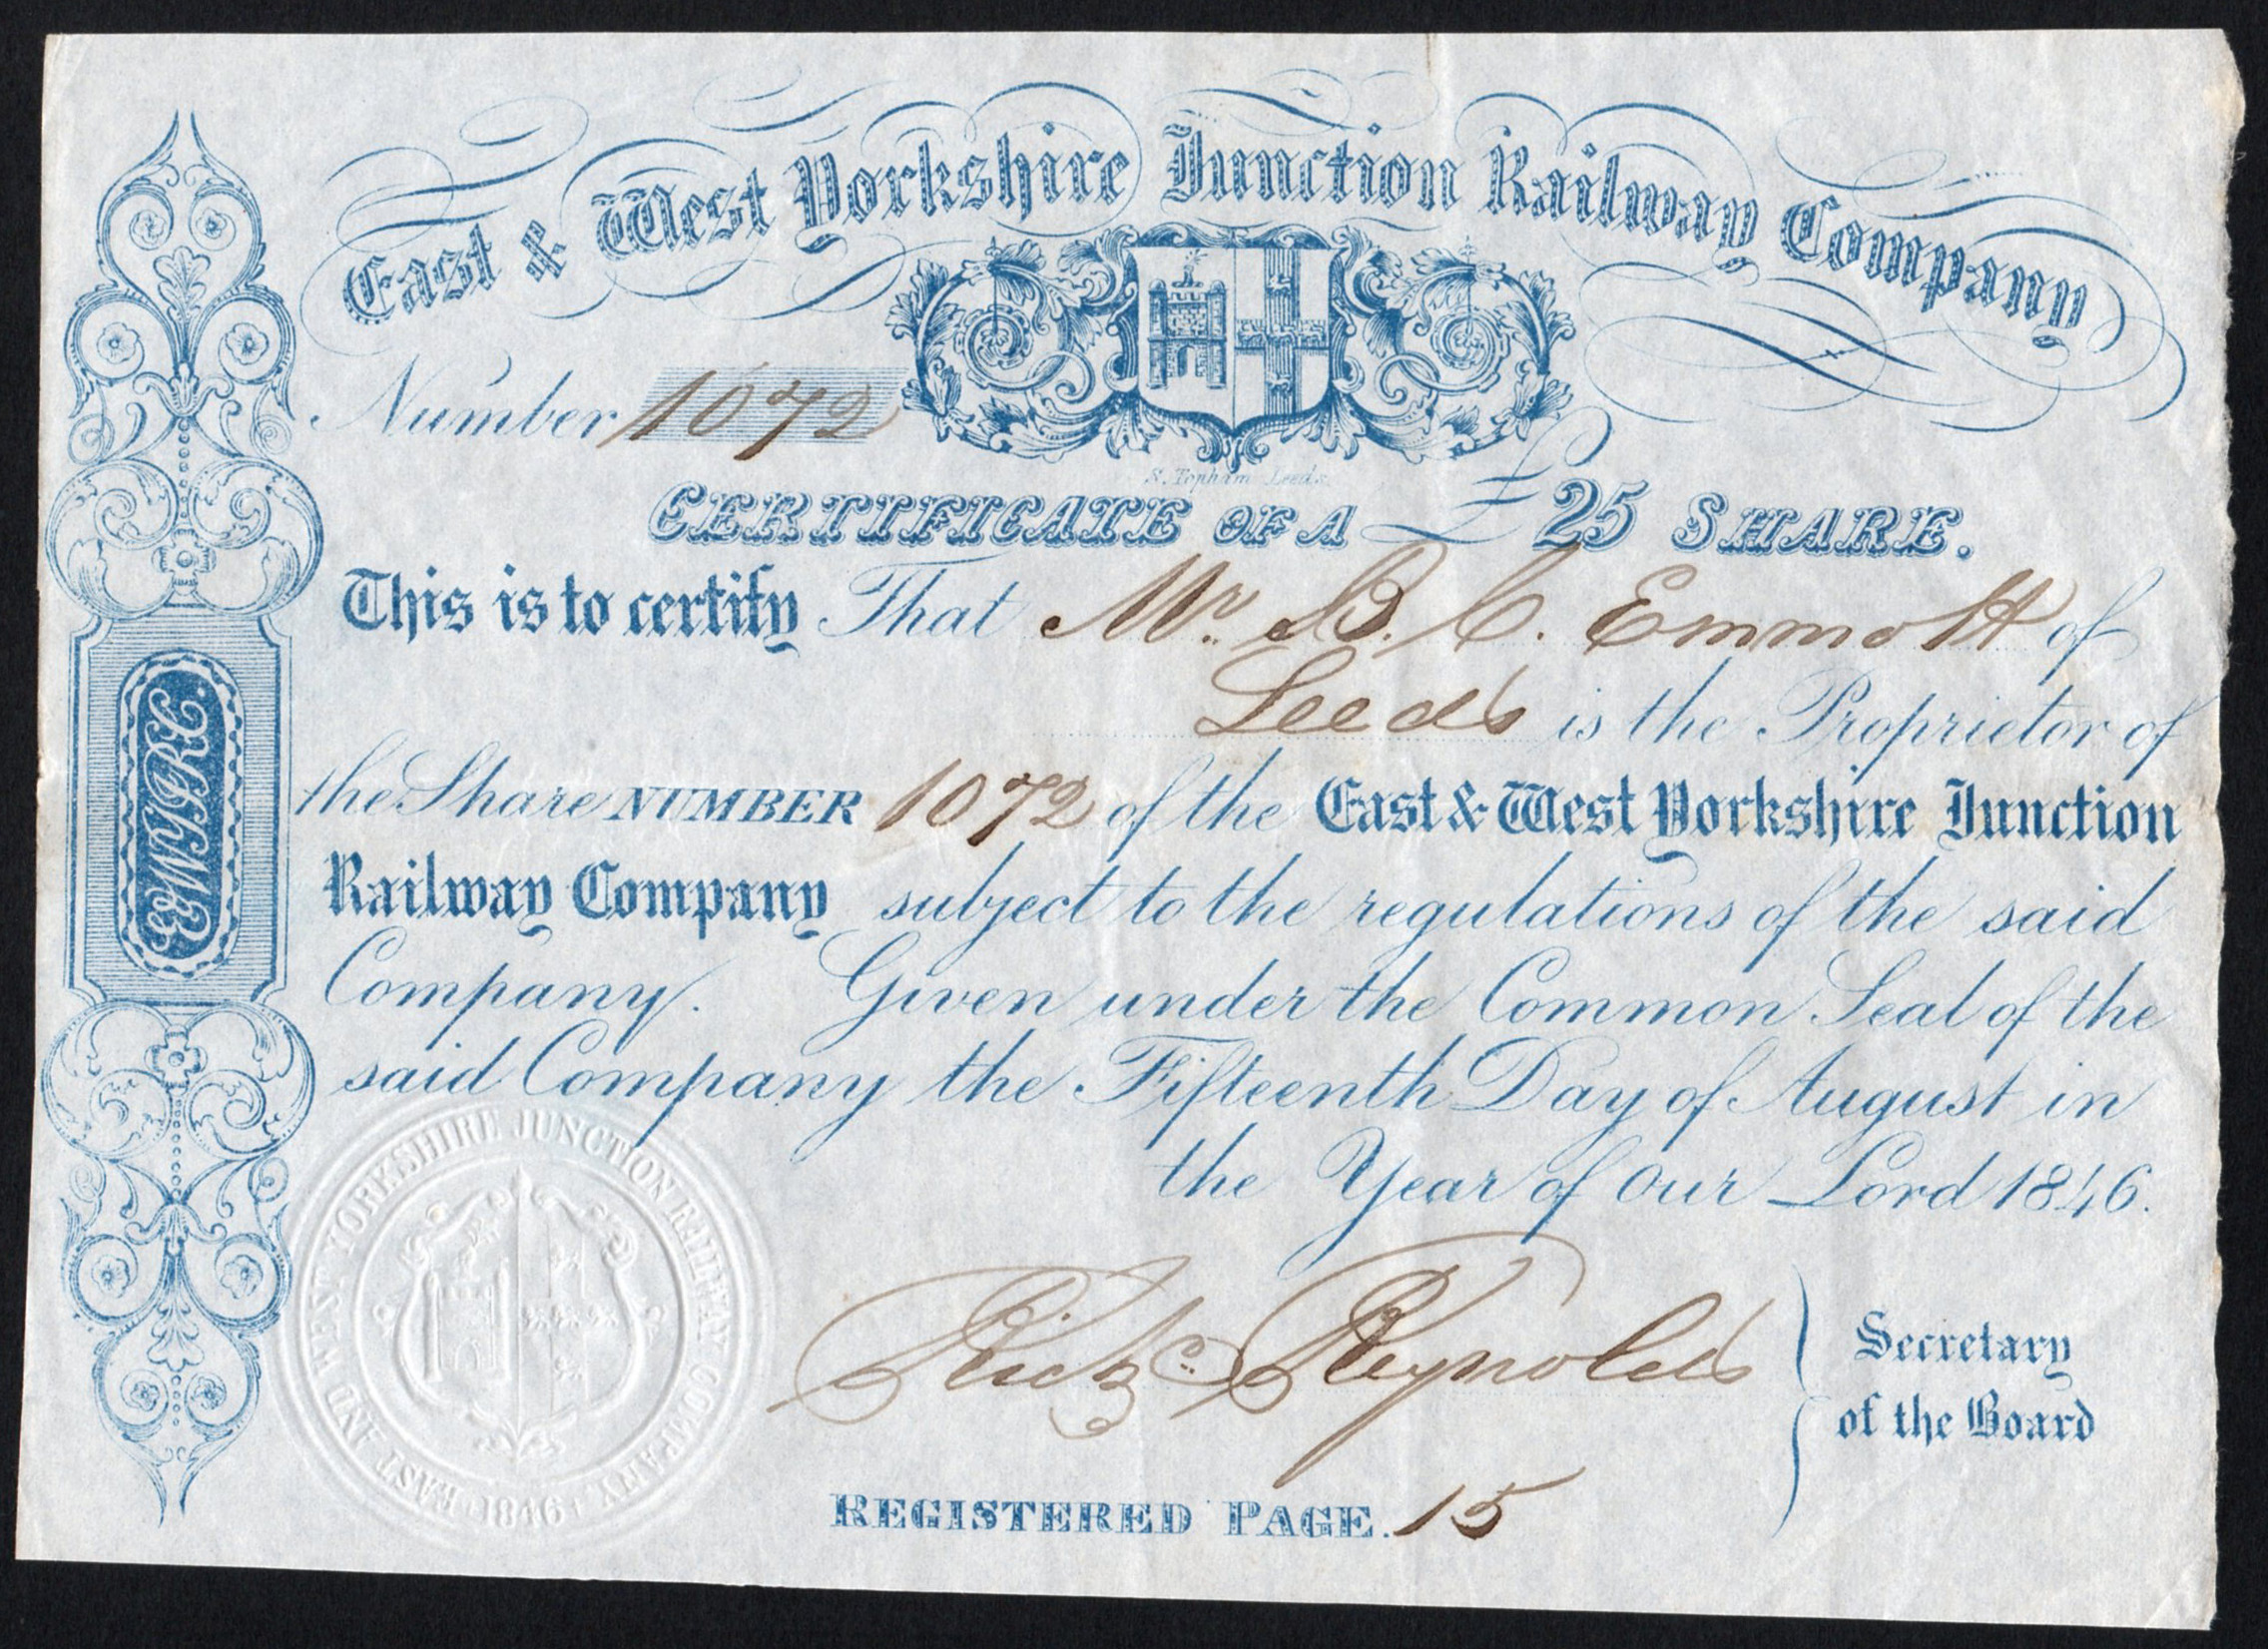 East & West Yorkshire Junction Railway Company
Number 1072
S. Topham Leeds.
CERTIFICATE OF A £25 SHARE.
This is to certify That Mr. B. C. Emmott of
Leeds is the Proprietor of
the Share NUMBER 1072 of the East & West Yorkshire Junction
Railway Company subject to the regulations of the said
Company. Given under the Common Seal of the
said Company the Fifteenth Day of August in
the Year of Our Lord 1846.
E&WYJRC.
EAST AND WEST YORKSHIRE JUNCTION RAILWAY COMPANY. 1846
Reynolds
Secretary
of the Board
REGISTERED PAGE. 15